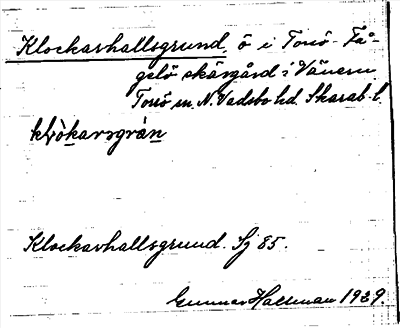 Klockarhallsgrund, ö i Torsö - Få-
gelö skärgård i Vänern.
Torsö sn. N. Vadsbo hd. Skarab. l.
Klockarhallsgrund. Sj 85.
Gunnar Hallman 1929.